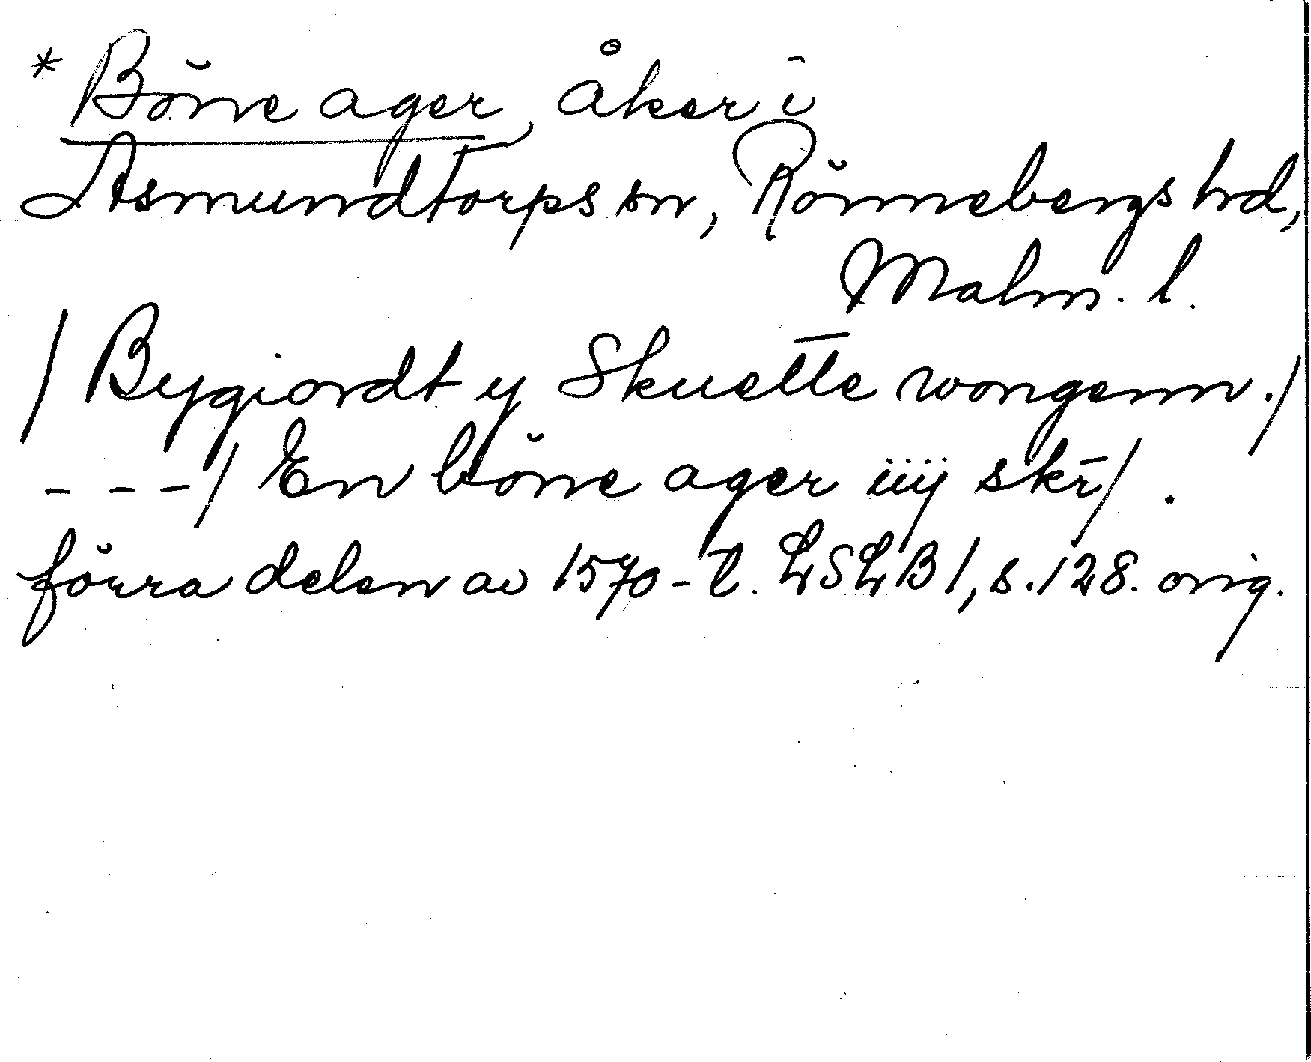 * Böne ager, åker i
Asmundtorps sn, Rönnebergs hd,
Malm. l.
/ Bygiordt y Skuette wongenn./
- - - / En böne ager iiij skr/.
förra delen av 1570-t. LSLB 1, s. 128. orig.